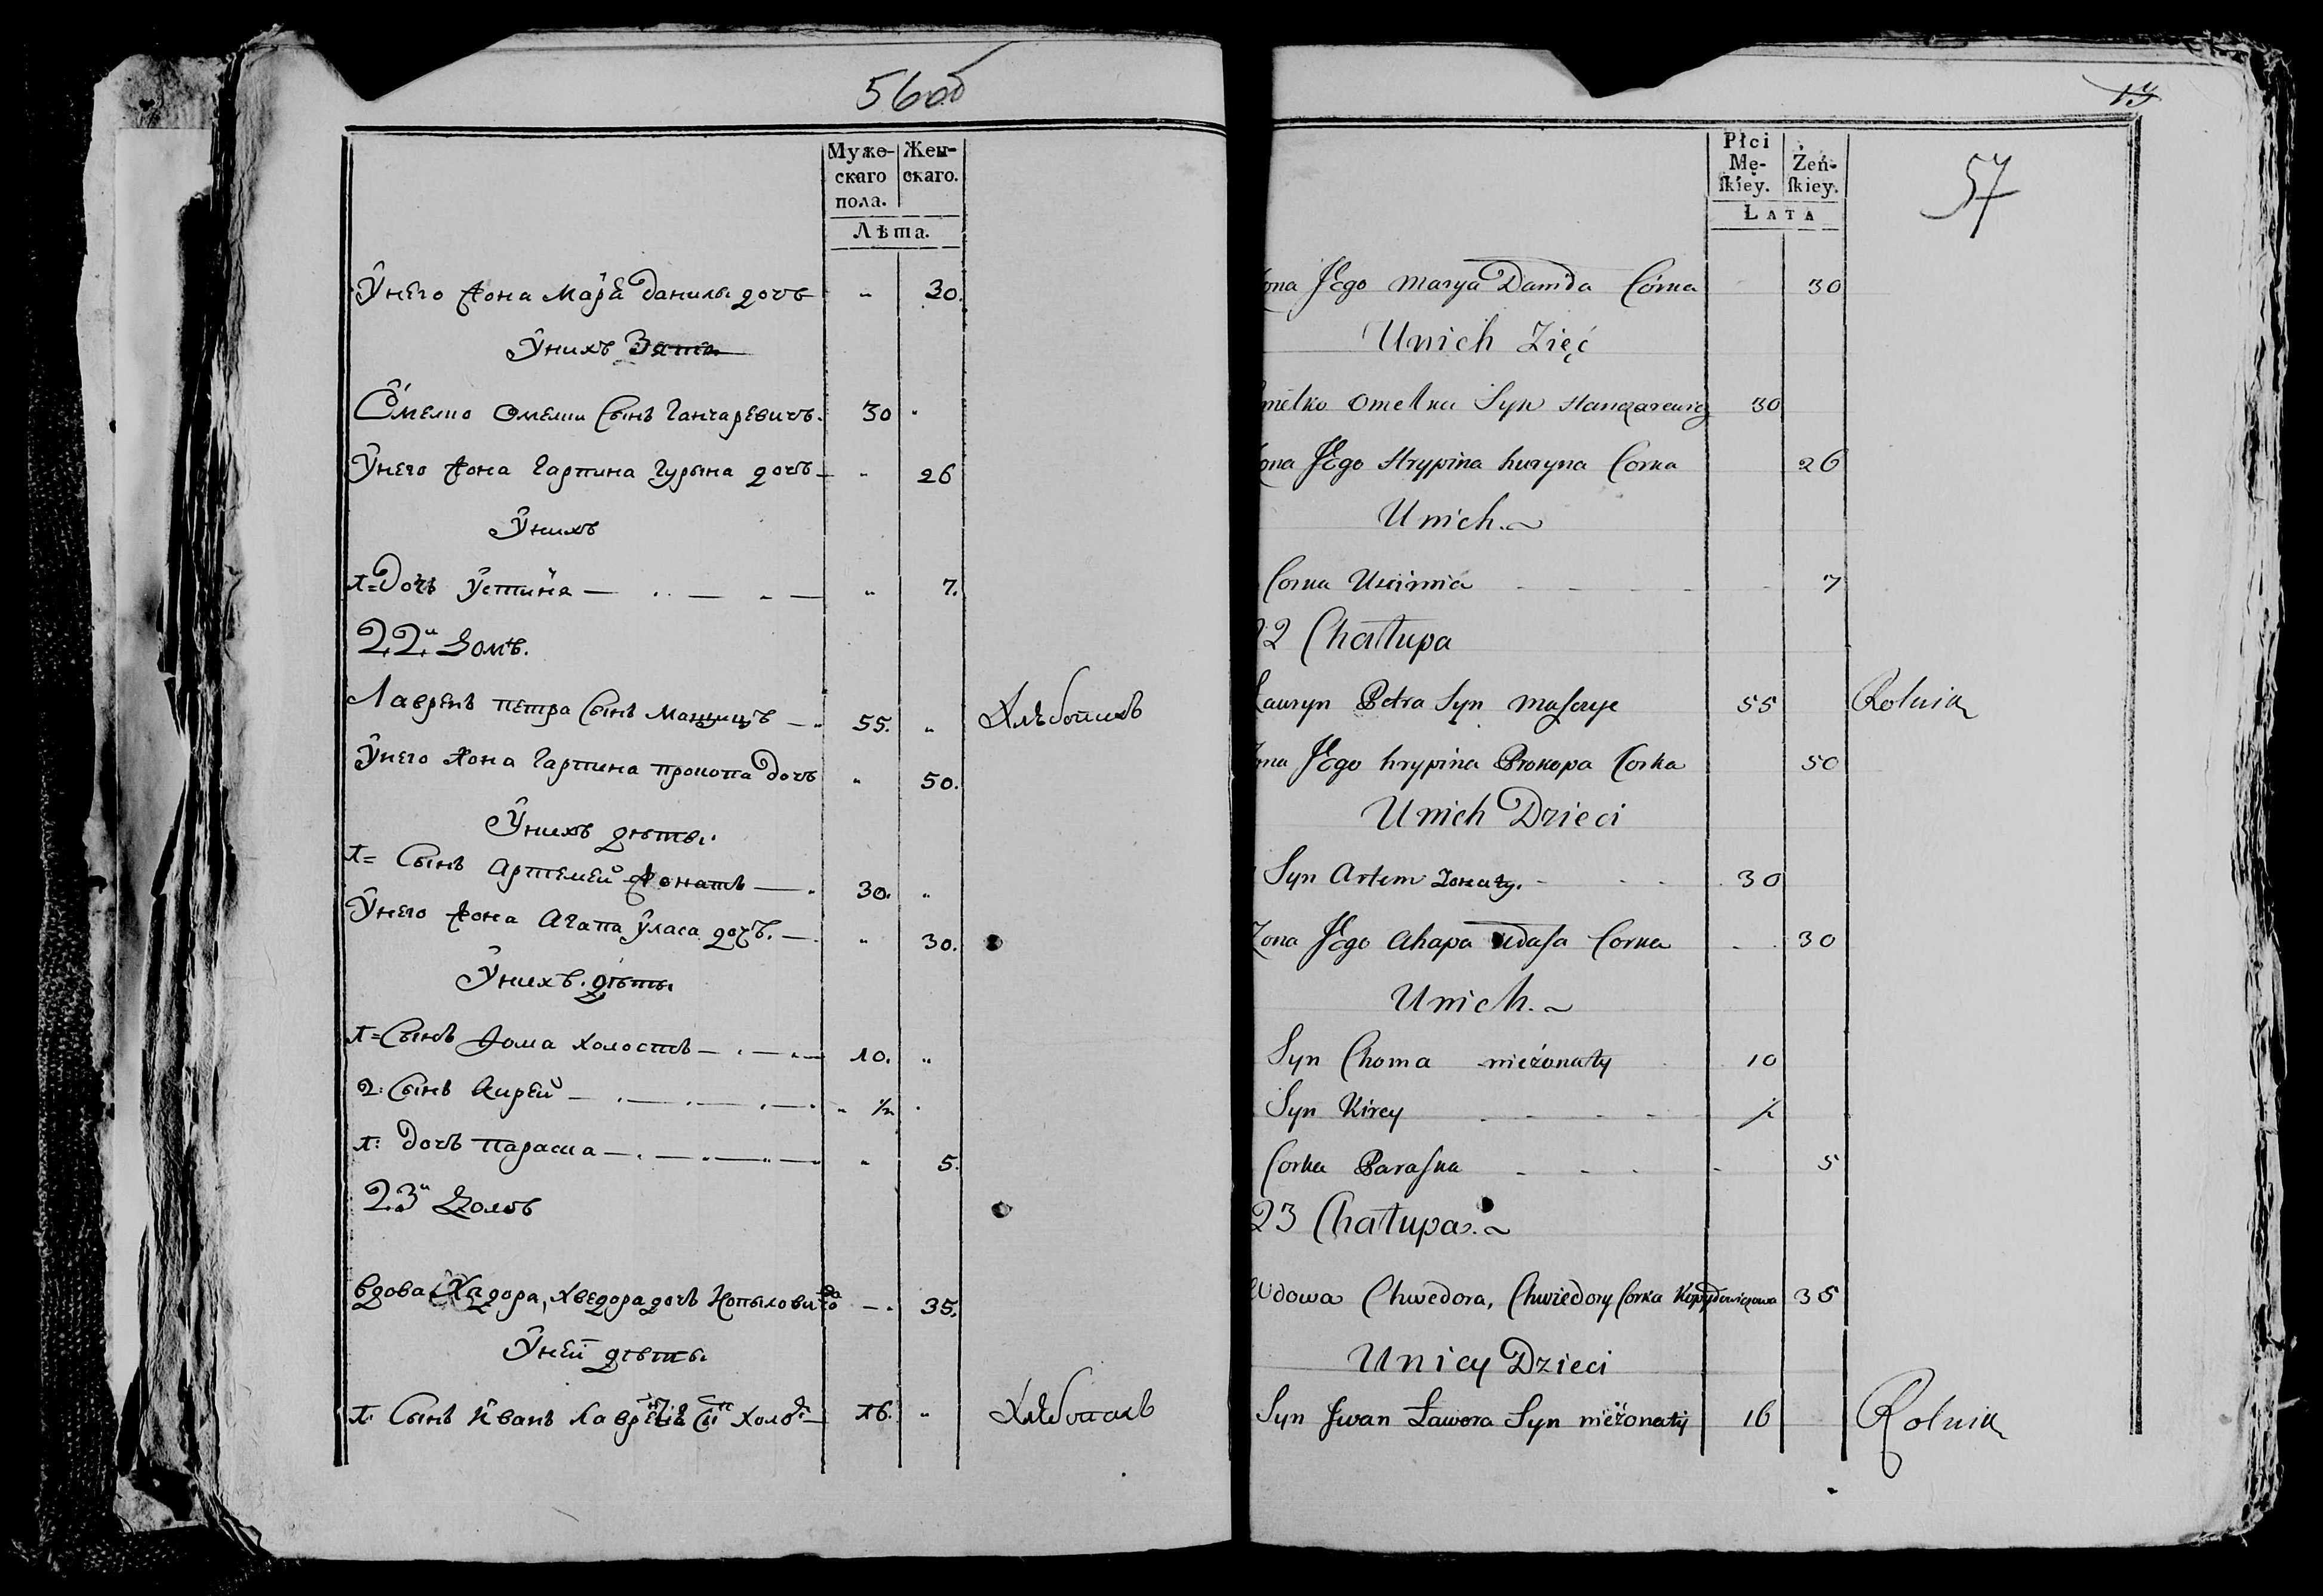 56об
Мужескаго пола.
Женскаго.
Лѣта.
Ўнего Жона Маря Данилы дочъ " 30.
Ўнихъ Зять
Омелко Омелки Сынъ Ганчаревичъ. 30 "
Ўнего Жона Гарпина Гурына дочъ " 26
Ўнихъ
1= Дочъ Ўстиня " 7.
22й Домъ.
Лавренъ петра Сынъ 55. " Хлѣбопашъ
Ўнего Жона Гарпина прокопа Дочъ " 50.
Ўнихъ дѣти.
1= Сынъ Артемей Жонатъ 30. "
Ўнего Жона Агапа ўласа дочъ. " 30.
Ўнихъ. дѣти
1= Сынъ Хома холостъ 10. "
2. Сынъ Кирей " ½ "
1. Дочъ параска " 5.
23й Домъ
Вдова Хвядора, Хведора дочъ 35.
Ўней дѣти.
1. Сынъ Иванъ холо: 16. " Хлѣбопашъ
13
57
Płci Mę-skiey.
Żeń-skiey.
LATA
ona Jego Marya Daniła Córka 30
Unich Zięć
melko Omelku Syn Hanczarewicz 30
ona Jego Hrypina huryna Corka 26
Unich.
Corka Uscinnia 7
22 Chałupa
Lauryn Petra Syn 55 Rolnik
ona Jego hrypina Prokopa Corka 50
Unich Dzieci
Syn Artem Zonaty. 30
Zona Jego Ahapa Corka 30
Unich.
Syn Choma nieżonaty 10
Syn Kirey ½
Corka Paraska 5
23 Chałupa.
Wdowa Chwedora, Chwiedory Corka 35
Unicy Dzieci
Syn Jwan Lawora Syn nieżonaty 16 Rolnik